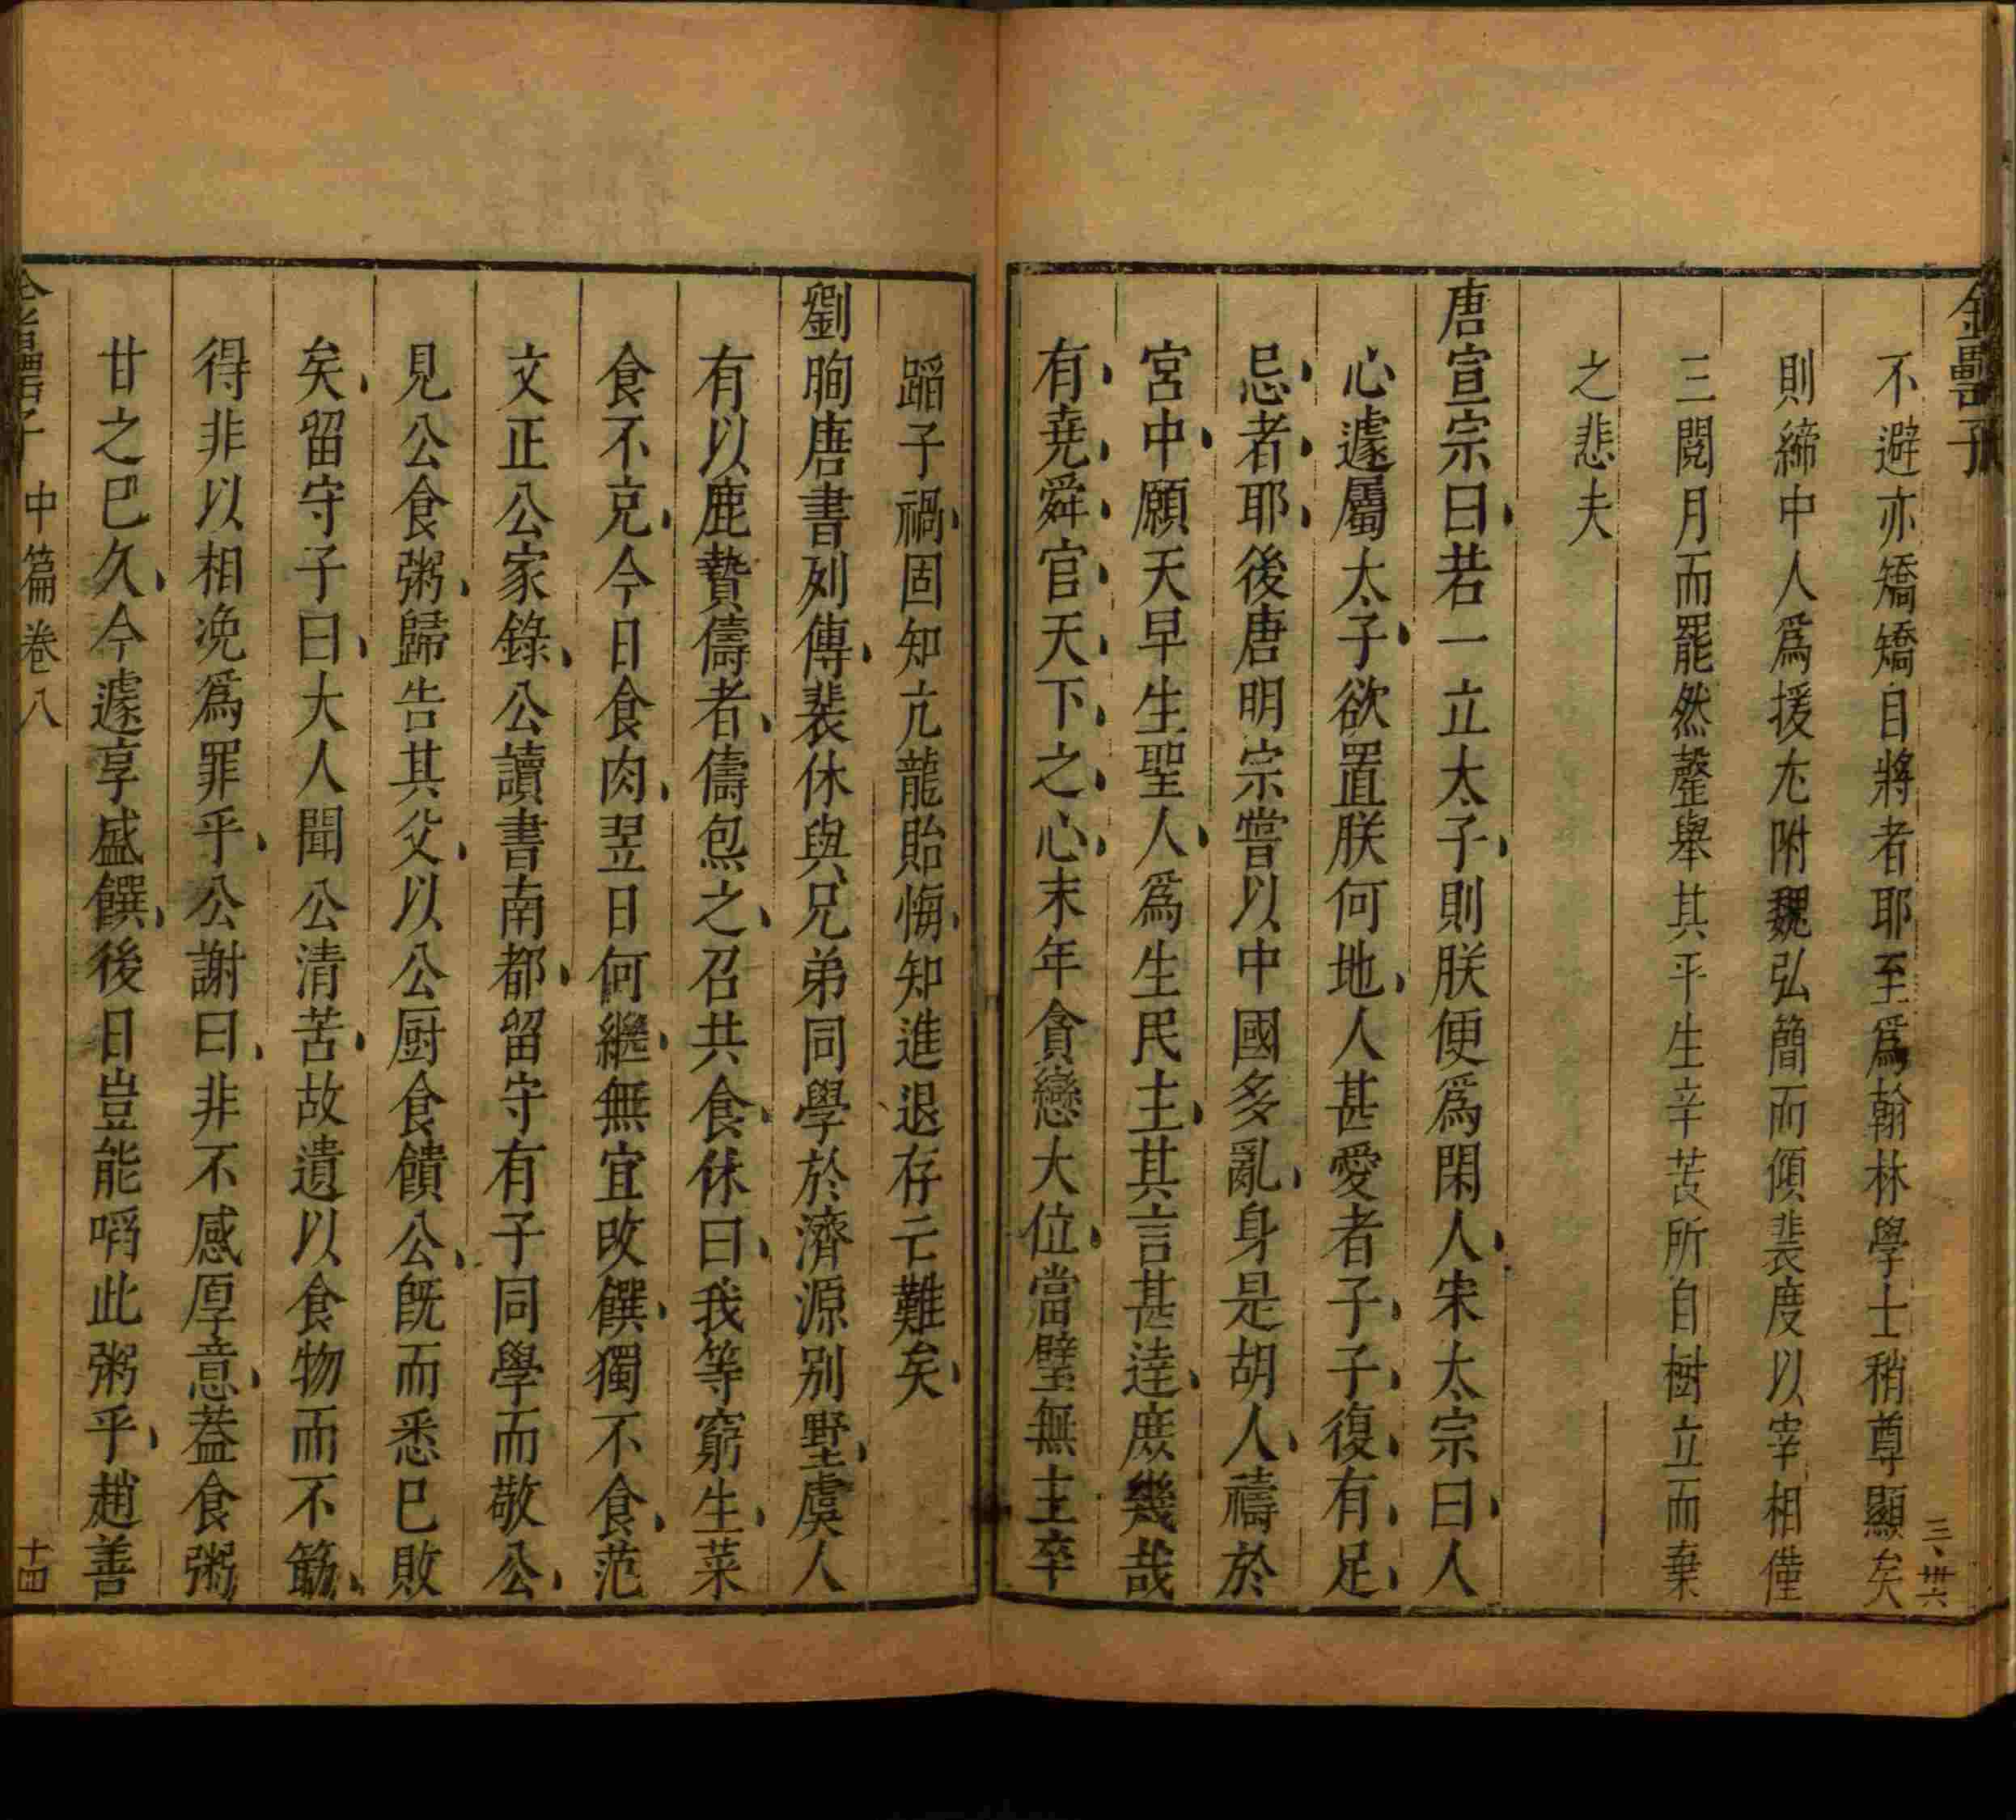 金罍子
三、卅六
不避亦矯矯自將者耶至爲翰林學士稍尊顯矣
則締中人爲援尢附魏弘簡而傾裴度以宰相僅
三閱月而罷然罄舉其平生辛苦所自樹立而棄
之悲夫
唐宣宗曰若一立太子則朕便爲閑人宋太宗曰人
心遽屬太子欲置朕何地人甚愛者子子復有足
忌者耶後唐明宗嘗以中國多亂身是胡人禱於
宮中願天早生聖人爲生民主其言甚逹庶幾哉
有堯舜官天下之心末年貪戀大位當璧無主卒
蹈子禍固知亢龍貽悔知進退存亡難矣
劉昫唐書列傳裴休與兄弟同學於濟源别墅虞人
有以鹿贄儔者儔炰之召共食休曰我等窮生菜
食不克今日食肉翌日何繼無宜改饌獨不食范
文正公家錄公讀書南都留守有子同學而敬公
見公食粥歸告其父以公厨食饋公旣而悉已敗
矣留守子曰大人聞公清苦故遺以食物而不筯
得非以相浼爲罪乎公謝曰非不感厚意葢食粥
甘之已久今遽享盛饌後日豈能啗此粥乎趙善
金罍子 中篇卷八 十四